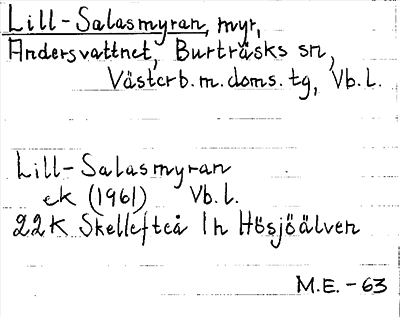 Lill-Salasmyran, myr,
Andersvattnet, Burträsks sn,
Västerb. m. doms. tg, Vb. l.
Lill-Salasmyran
ek (1961) Vb. l.
22K Skellefteå 1h Hösjöälven
M.E. - 63